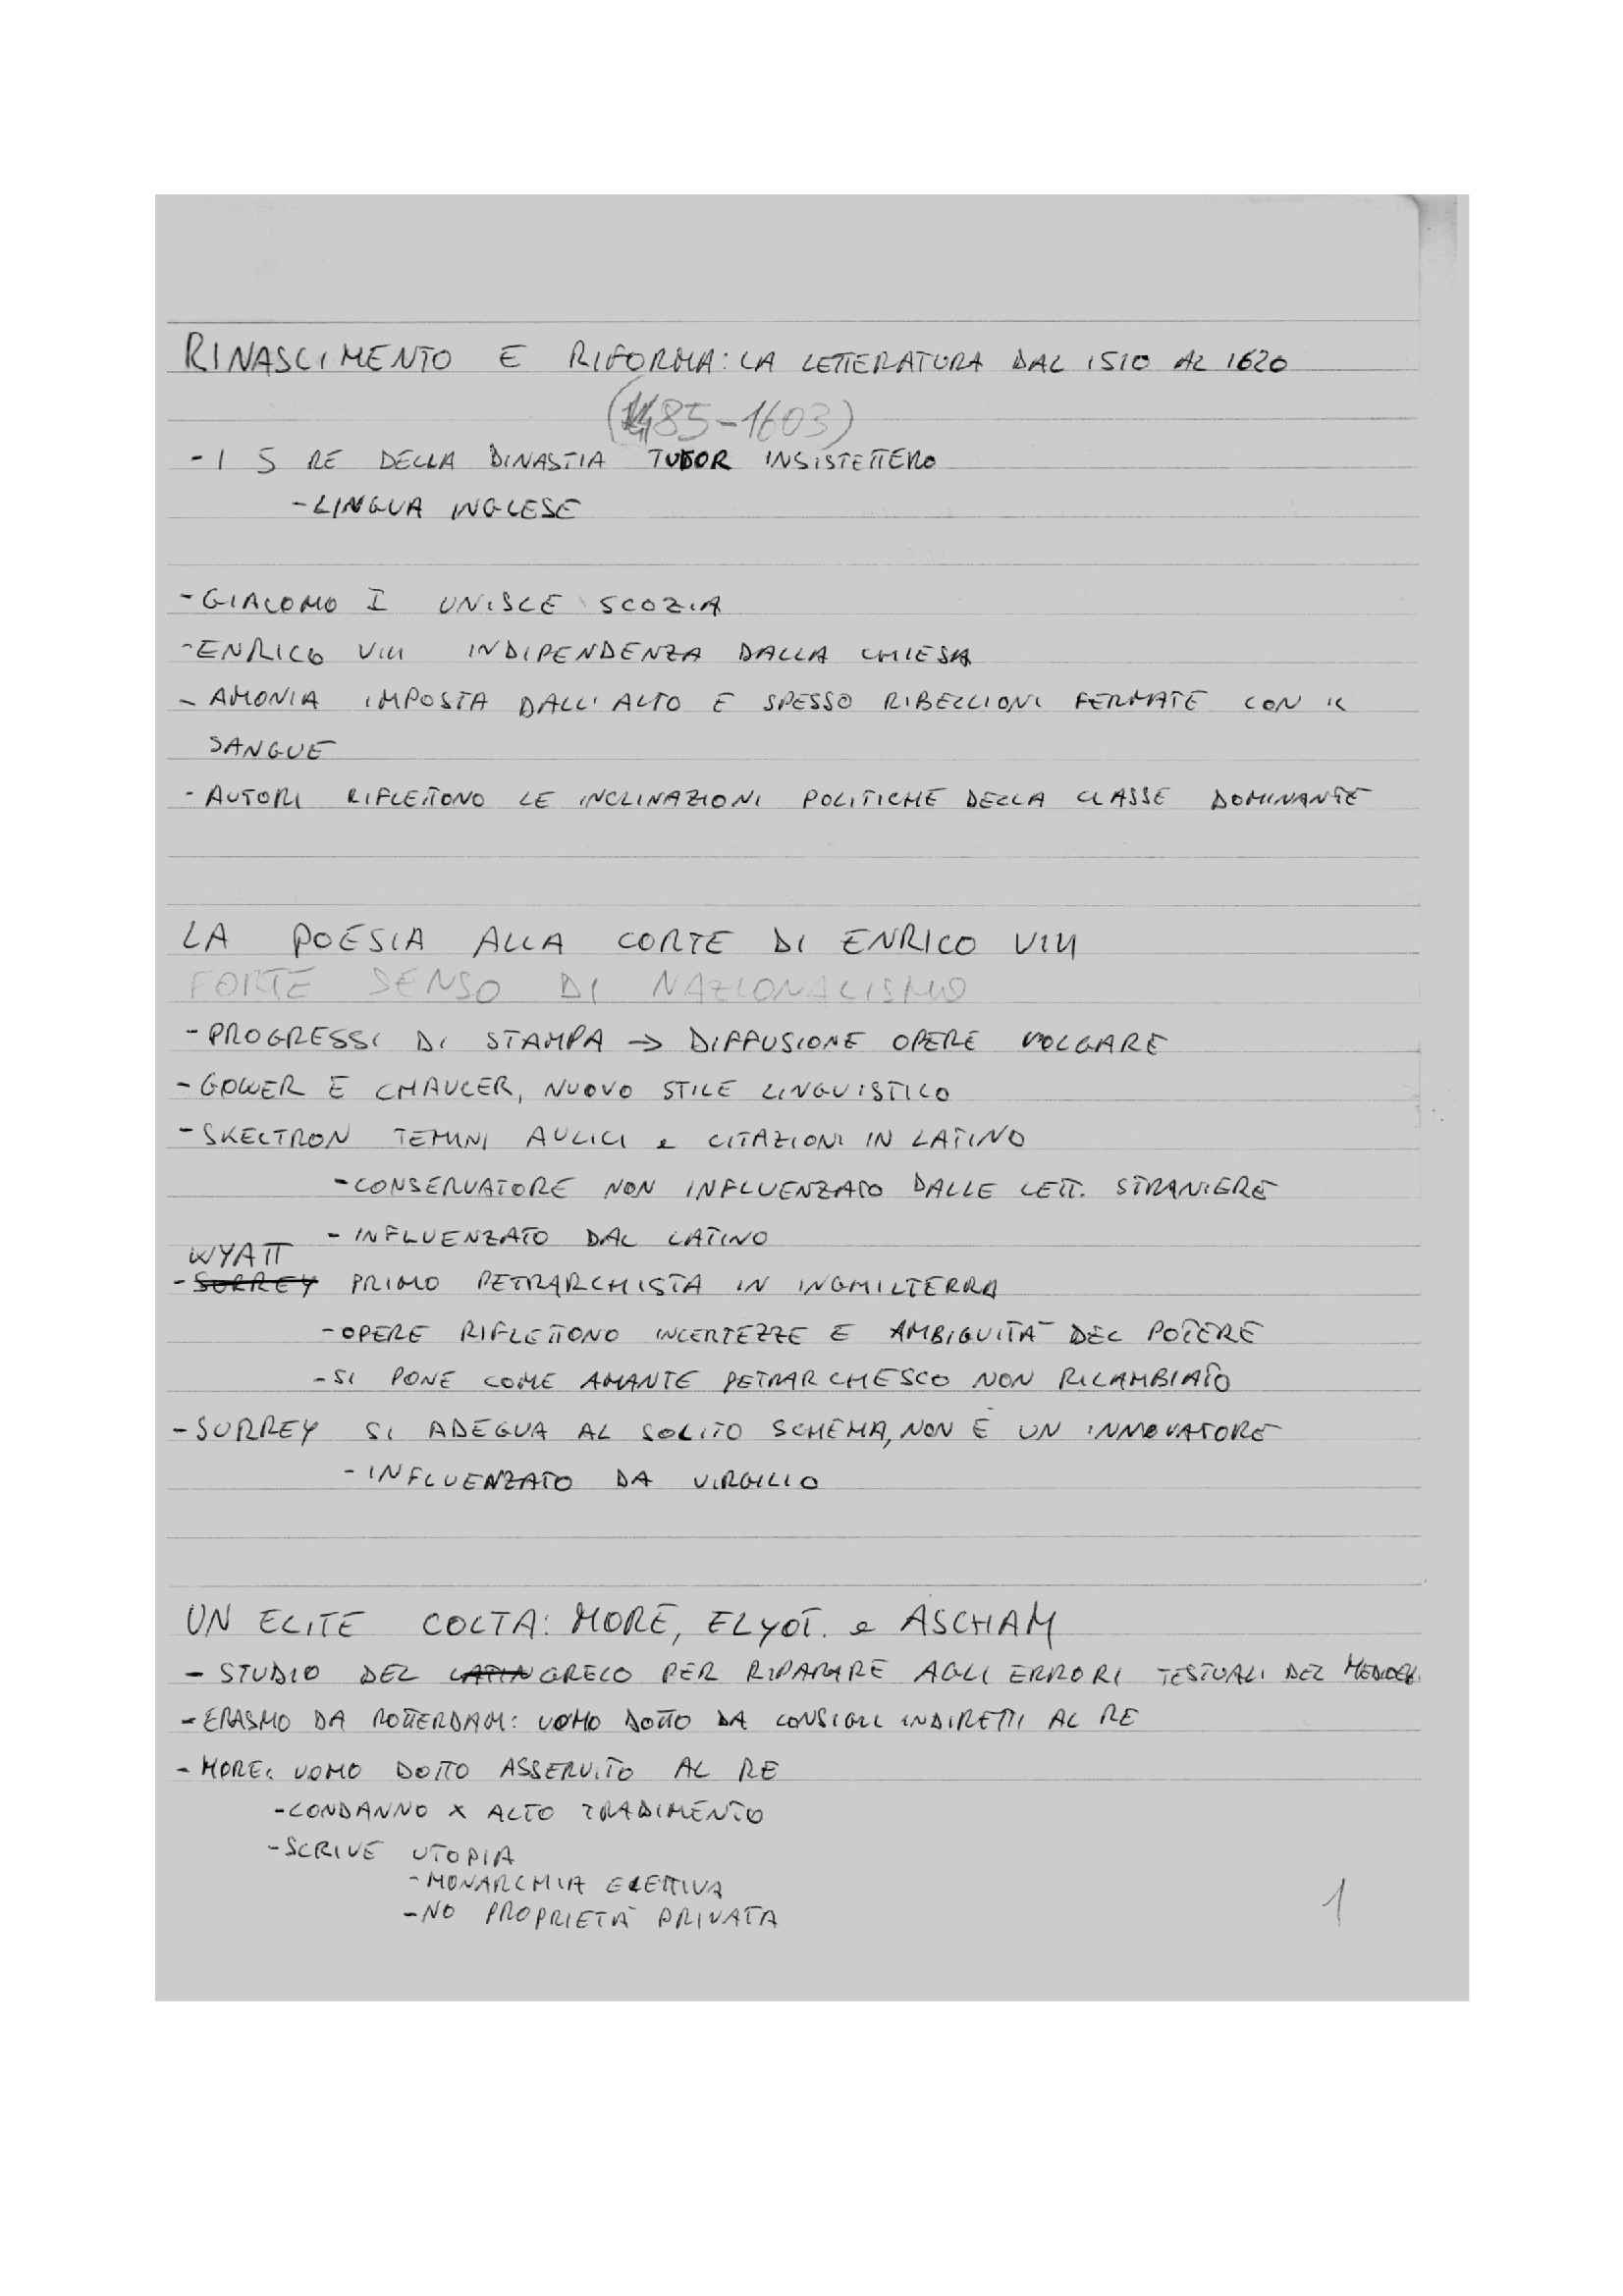 RINASCIMENTO E RIFORMA: LA LETTERATURA DAL 1510 AL 1620
(1485-1603)
- I 5 RE DELLA DINASTIA TUDOR INSISTETTERO
- LINGUA INGLESE
- GIACOMO I UNISCE SCOZIA
- ENRICO VIII INDIPENDENZA DALLA CHIESA
- AMONIA IMPOSTA DALL'ALTO E SPESSO RIBELLIONI FERMATE CON IL
SANGUE
- AUTORI RIFLETTONO LE INCLINAZIONI POLITICHE DELLA CLASSE DOMINANTE
LA POESIA ALLA CORTE DI ENRICO VIII
FORTE SENSO DI NAZIONALISMO
- PROGRESSI DI STAMPA → DIFFUSIONE OPERE VOLGARE
- GOWER E CHAUCER, NUOVO STILE LINGUISTICO
- SKELTRON TEMINI AULICI e CITAZIONI IN LATINO
- CONSERVATORE NON INFLUENZATO DALLE LETT. STRANIERE
- INFLUENZATO DAL LATINO
WYATT
- SURREY PRIMO PETRARCHISTA IN INGHILTERRA
- OPERE RIFLETTONO INCERTEZZE E AMBIGUITA' DEL POTERE
- SI PONE COME AMANTE PETRARCHESCO NON RICAMBIATO
- SURREY SI ADEGUA AL SOLITO SCHEMA, NON È UN INNOVATORE
- INFLUENZATO DA VIRGILIO
UN ELITE COLTA: MORE, ELYOT. e ASCHAM
- STUDIO DEL LATIN GRECO PER RIPARARE AGLI ERRORI TESTUALI DEL
- ERASMO DA ROTTERDAM: UOMO DOTTO DA CONSIGLI INDIRETTI AL RE
- MORE: UOMO DOTTO ASSERVITO AL RE
- CONDANNO X ALTO TRADIMENTO
- SCRIVE UTOPIA
- MONARCHIA ELETTIVA
- NO PROPRIETÀ PRIVATA
1